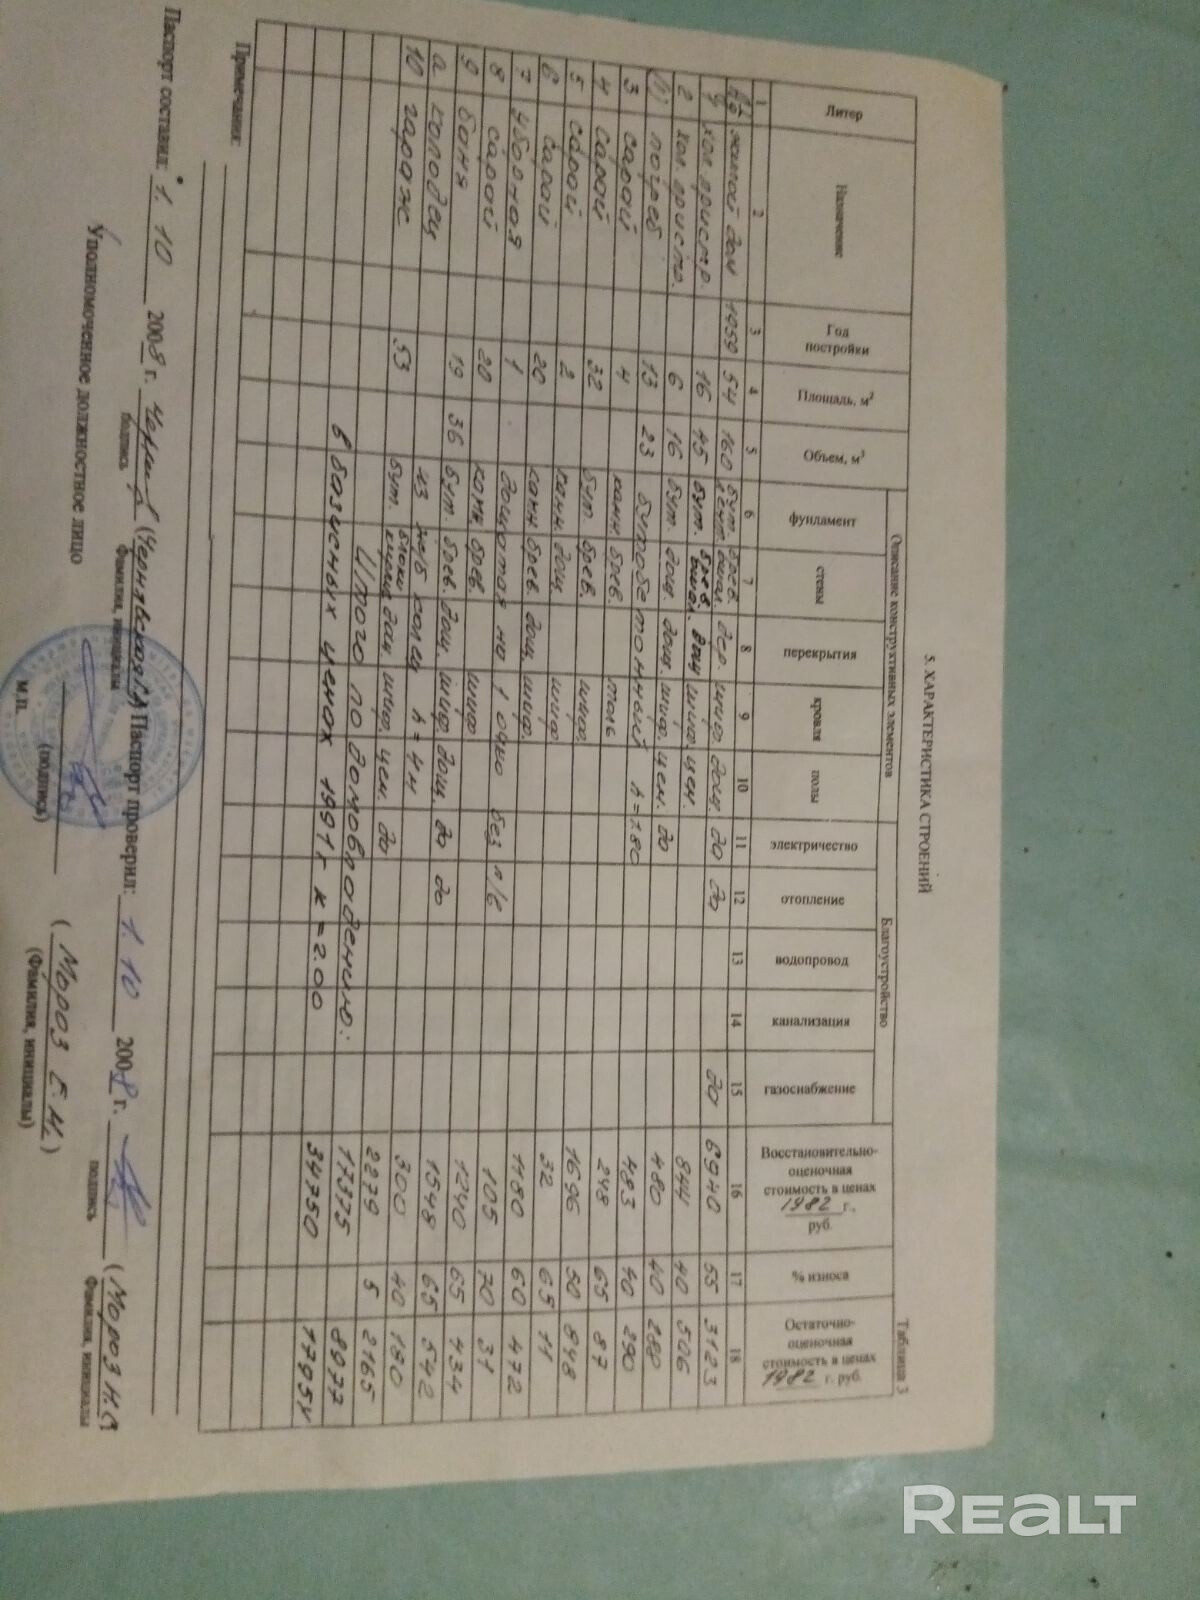 5. ХАРАКТЕРИСТИКА СТРОЕНИЙ
Таблица 3
Литер Назначение Год постройки Площадь, м² Объем, м³ Описание конструктивных элементов Благоустройство Восстановительно-оценочная стоимость в ценах 1982 г., руб. % износа Остаточно-оценочная стоимость в ценах 1982 г. руб.
фундамент стены перекрытия кровля полы электричество отопление водопровод канализация газоснабжение
1 2 3 4 5 6 7 8 9 10 11 12 13 14 15 16 17 18
жилой дом 1959 54 160 бут. брев. дер. шифр. дощ. да да да 6940 55 3123
хол. пристр. 16 45 бут. брев. дощ шифр. цем. 844 40 506
2 хол. пристр. 6 16 бут. дощ. дощ. шифр. цем. да 480 40 288
погреб 13 23 бутобетонный h=1.80 483 40 290
3 сарай 4 камн. брев. толь 248 65 87
4 сарай 32 бут. брев. шифр. 1696 50 848
5 сарай 2 камн. дощ. шифр. 32 65 11
6 сарай 20 камн. брев. дощ. шифр. 1180 60 472
7 уборная 1 дощатая на 1 очко без п/в 105 70 31
8 сарай 20 камн. брев. шифр. 1240 65 434
9 баня 19 36 бут. брев. дощ. шифр. дощ. да да 1548 65 542
а колодец из ж/б колец h=4м 300 40 180
10 гараж 53 бут. блоки дощ. шифр. цем. да 2279 5 2165
Итого по домовладению: 17375 8977
в базисных ценах 1991г к=2.00 34750 17954
Примечания:
Паспорт составил: 1. 10 2008 г. (Чернявская Паспорт проверил: 1. 10 2008 г. (Мороз
подпись Фамилия, инициалы подпись Фамилия, инициалы
Уполномоченное должностное лицо (Мороз Е.И.)
(подпись) (Фамилия, инициалы)
М.П.
REALT